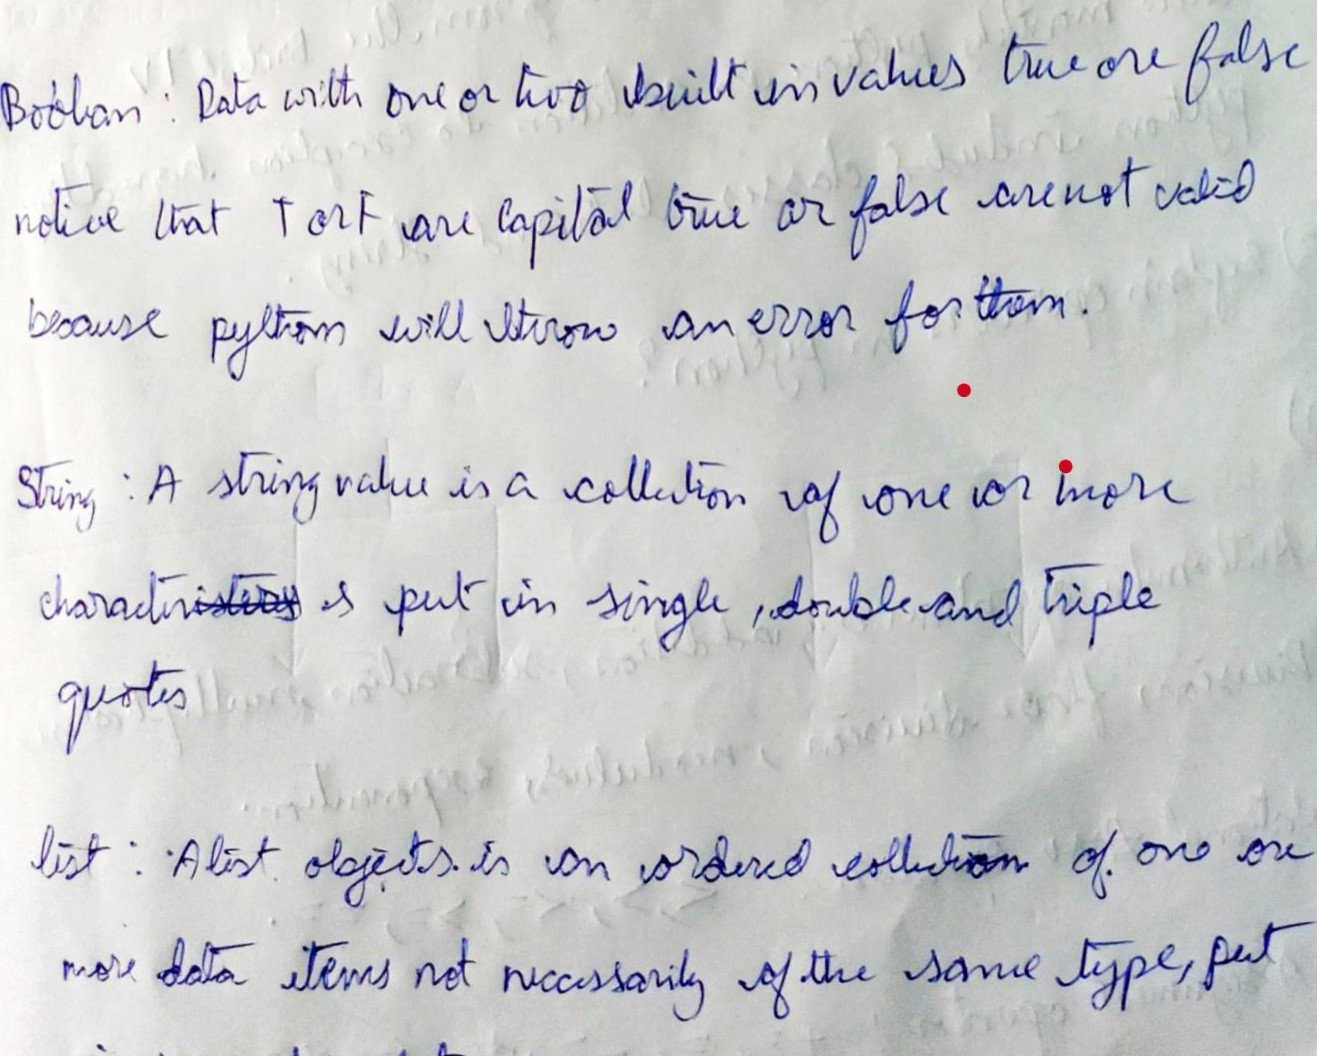 Boolean : Data with one or two built in values true ore false
notice that T or F are capital true or false are not valid
because python will throw an error for them.
String : A string value is a collection of one or more
characters put in single, double and triple
quotes
list : A list objects is an ordered collection of one ore
more data items not necessarily of the same type, put